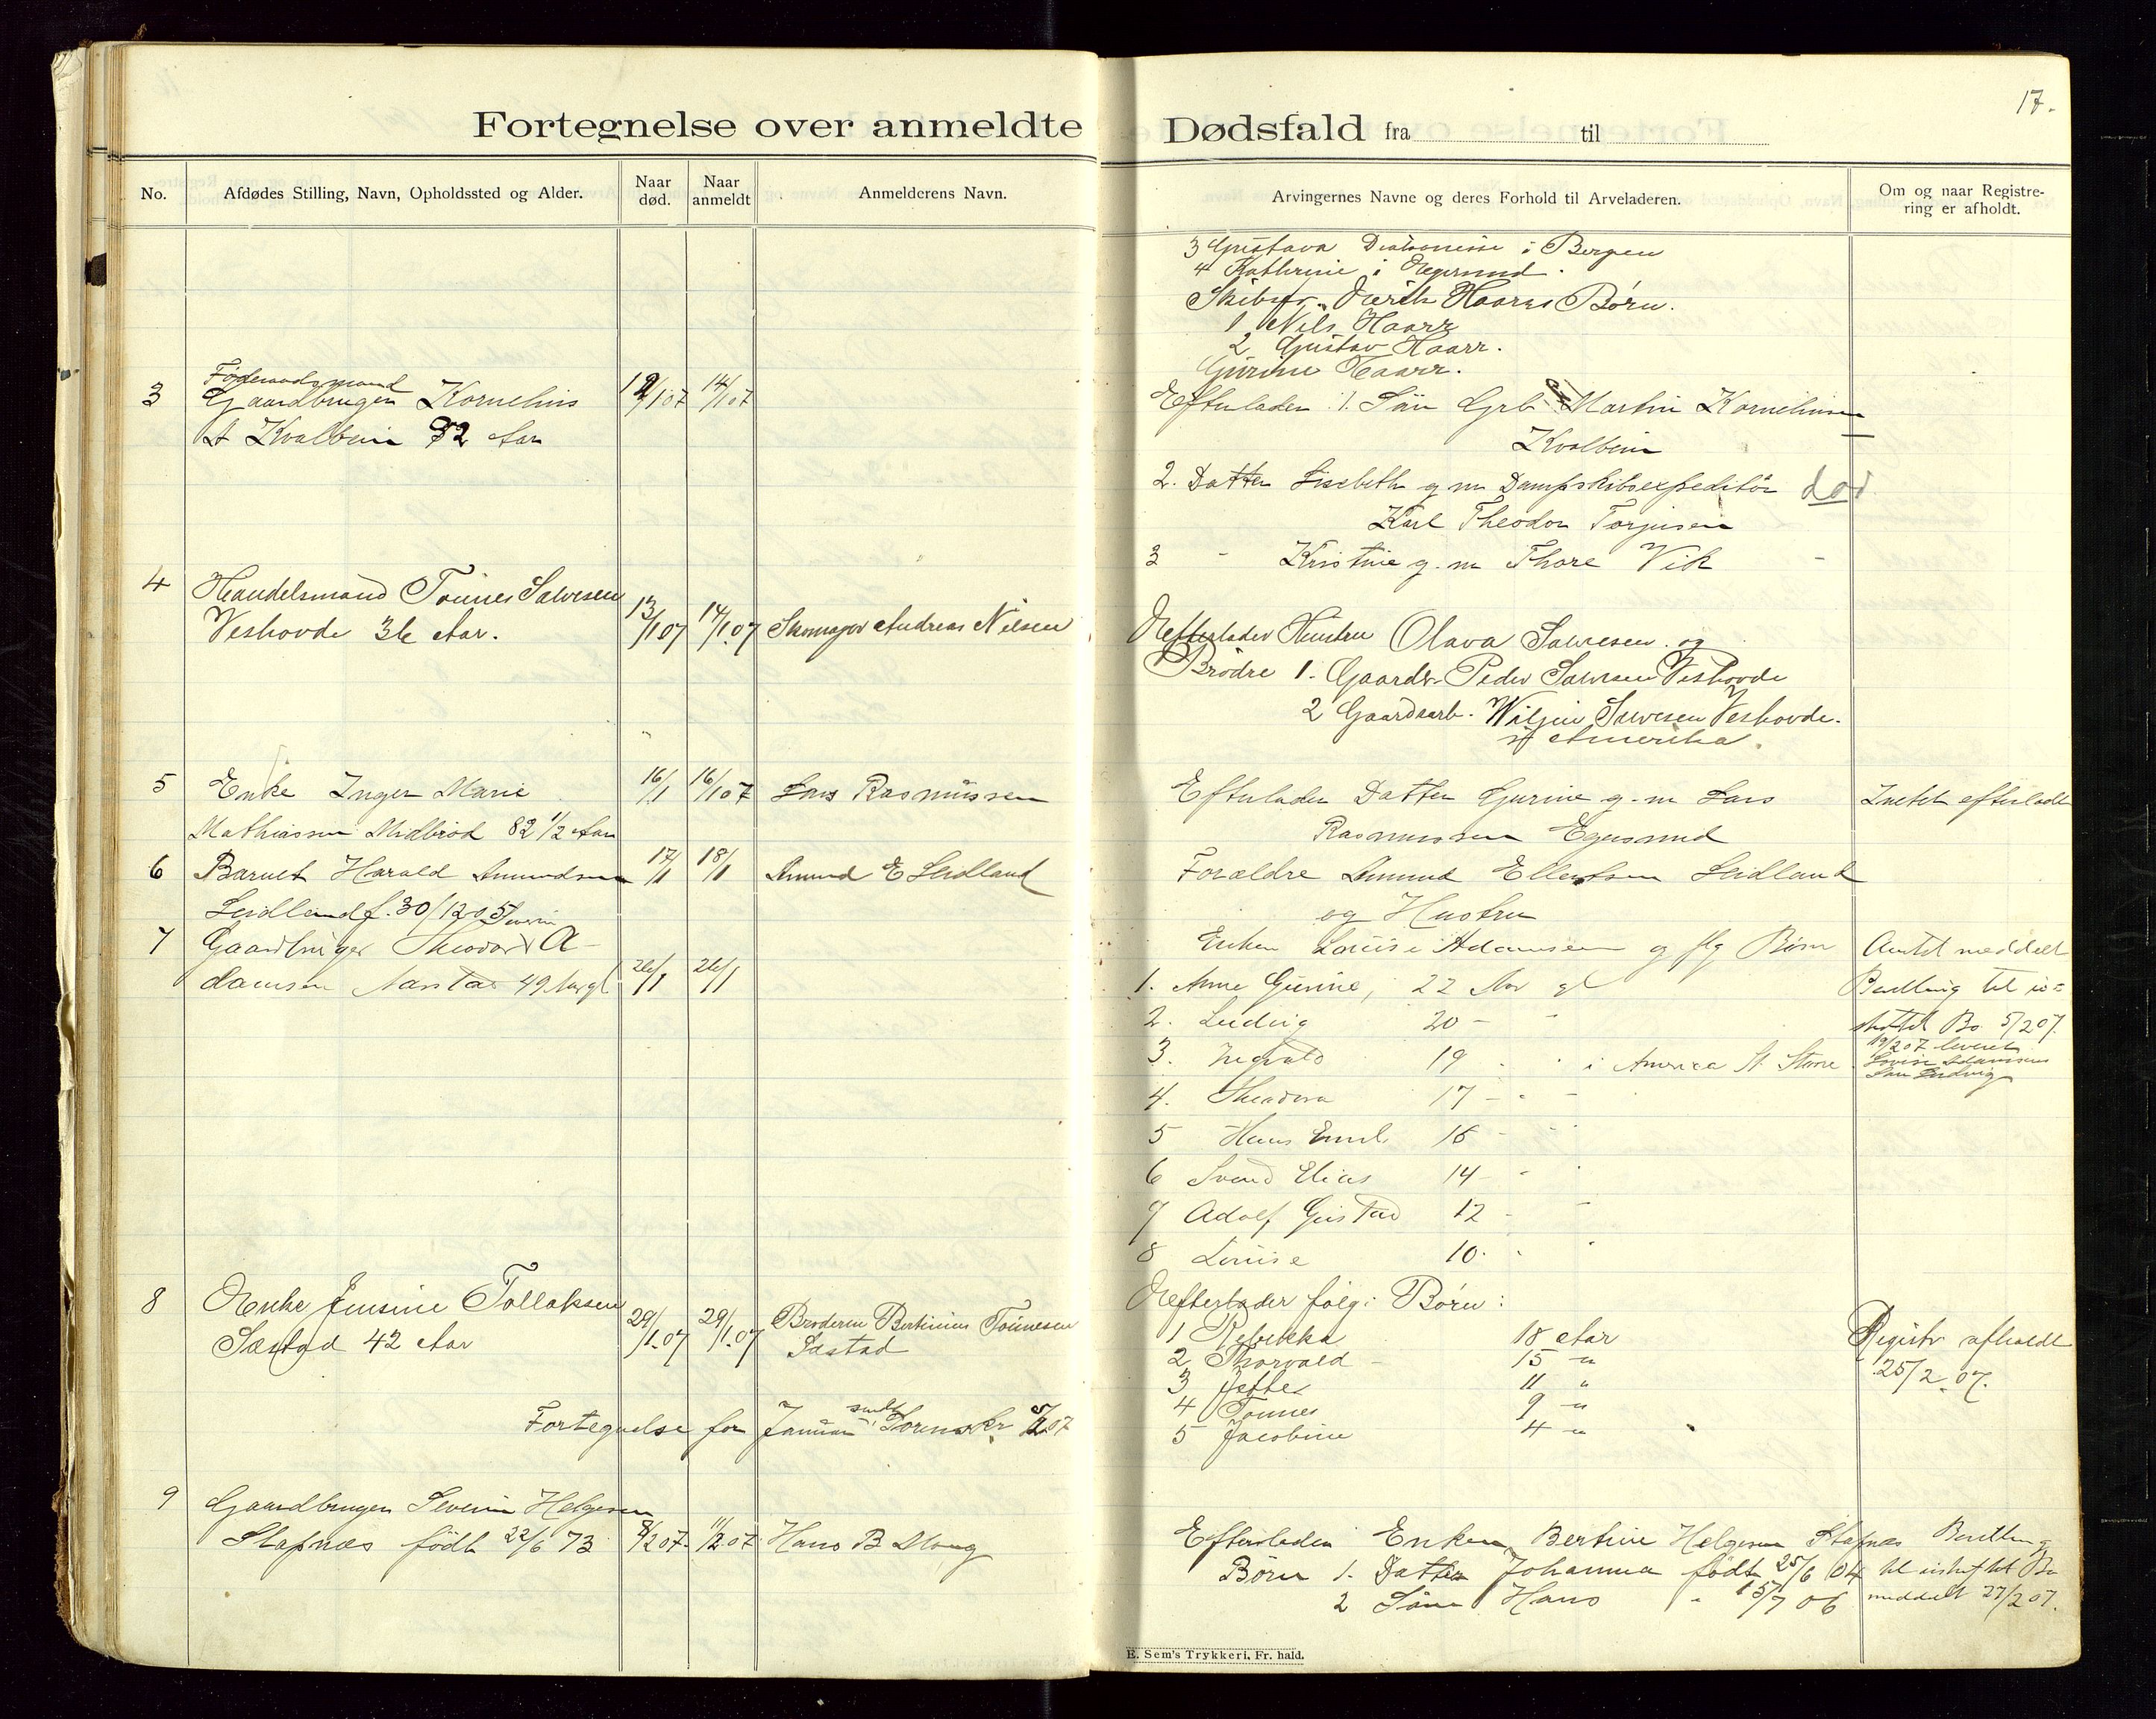 17.
Fortegnelse over anmeldte Dødsfald fra til
No.
Afdødes Stilling, Navn, Opholdssted og Alder.
Naar død.
Naar anmeldt
Anmelderens Navn.
Arvingernes Navne og deres Forhold til Arveladeren.
Om og naar Registre-
ring er afholdt.
3 Gustava Diakonisse i Bergen
4 Kathrine i Egersund.
Haarrs Børn.
1 Nils Haarr
2 Gustav Haarr.
Gurine Haarr.
Føderaadsmand
3 Gaardbruger Kornelius 14/1 07
Kvalbein 82 Aar
Efterlader: 1. Søn Grb. Martin Korneliussen
Kvalbein
2. Datter Lisebeth g. m Dampskibsexpeditør død
Karl Theodor Torjusen
3 - Kristine g. m Thore Vik -
4 Handelsmand Tønnes Salvesen
Veshovde 36 Aar. 13/1 07 14/1 07 Skomager Andreas Nilsen
Efterlader Hustru Olava Salvesen og
Brødre 1. Gaardbr. Peder Salvesen Veshovde
2 Gaardarb. Salvesen Veshovde.
Amerika.
5 Enke Inger Marie 16/1 16/1 07 Lars Rasmussen
Mathiassen Midbrød 82 1/2 Aar
Efterlader Datter Gurine g. m Lars
Rasmussen Egersund
Intet efterladt
6 Barnet Harald Amundsen 17/1 18/1 Amund E Leidland
Leidland f. 30/12 05
Forældre Amund Ellertsen Leidland
og Hustru
7 Gaardbruger Theodor Severin A-
damsen 49 Aar gl 26/1 26/1
Enken Louise Adamsen og flg Børn
1. Anne Gurine, 22 Aar gl
2. Ludvig 20 - "
3. 19 " " i America
4. Theodora 17 - " -
5 Hans Emil 16 - "
6 Svend Elias 14 - "
7 Adolf Gustav 12 - -
8 Louise 10 - "
Amtet meddelt
Bevilling til u=
skiftet Bo 5/2 07.
19/2 07 leveret
Lovise Adamsens
Søn Ludvig
8 Enke Jensine Tollaksen
Sæstad 42 Aar 29/1.07 29/1.07 Broderen Bertinius Tønnesen
Sæstad
Efterlader følg: Børn:
1 Rebekka 18 Aar
2 Thorvald - 15 "
3 11 "
4 Tønnes 9 "
5 Jacobine 4 "
Registr afholdt
25/2 07.
Fortegnelse for Januar sendt Sorenskr 5/2 07
9 Gaardbruger Severin Helgesen
Stapnæs født 22/6 73 8/2 07. 11/2 07 Hans B Mong
Efterlader Enken Bertine Helgesen Stapnæs
Børn 1. Datter Johanna født 25/6 04
2 Søn Hans " 15/7 06
Bevilling
til uskiftet Bo
meddelt 27/2 07.
E. Sem's Trykkeri, Fr. hald.